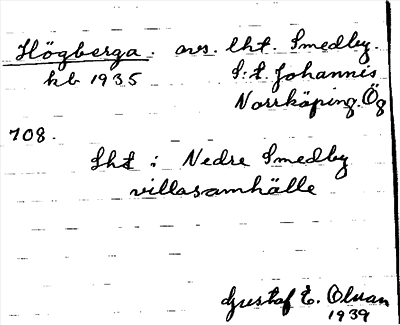 Högberga. avs. lht. Smedby.
kb 1935 S:t Johannis
Norrköping. Ög
708.
Lht i Nedre Smedby
villasamhälle
Gustaf E. Olvan
1939